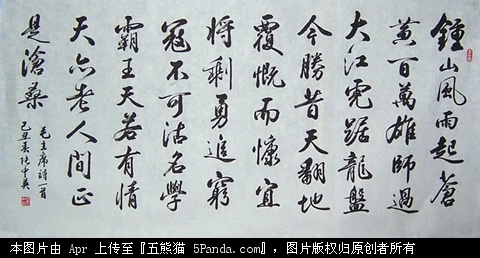 鍾山風雨起蒼
黃百萬雄師過
大江虎踞龍盤
今勝昔天翻地
覆慨而慷宜
將剩勇追窮
寇不可沽名學
霸王天若有情
天亦老人間正
是滄桑
毛主席詩一首
己丑 張中英
本图片由 Apr 上传至『五熊猫 5Panda.com』, 图片版权归原创者所有